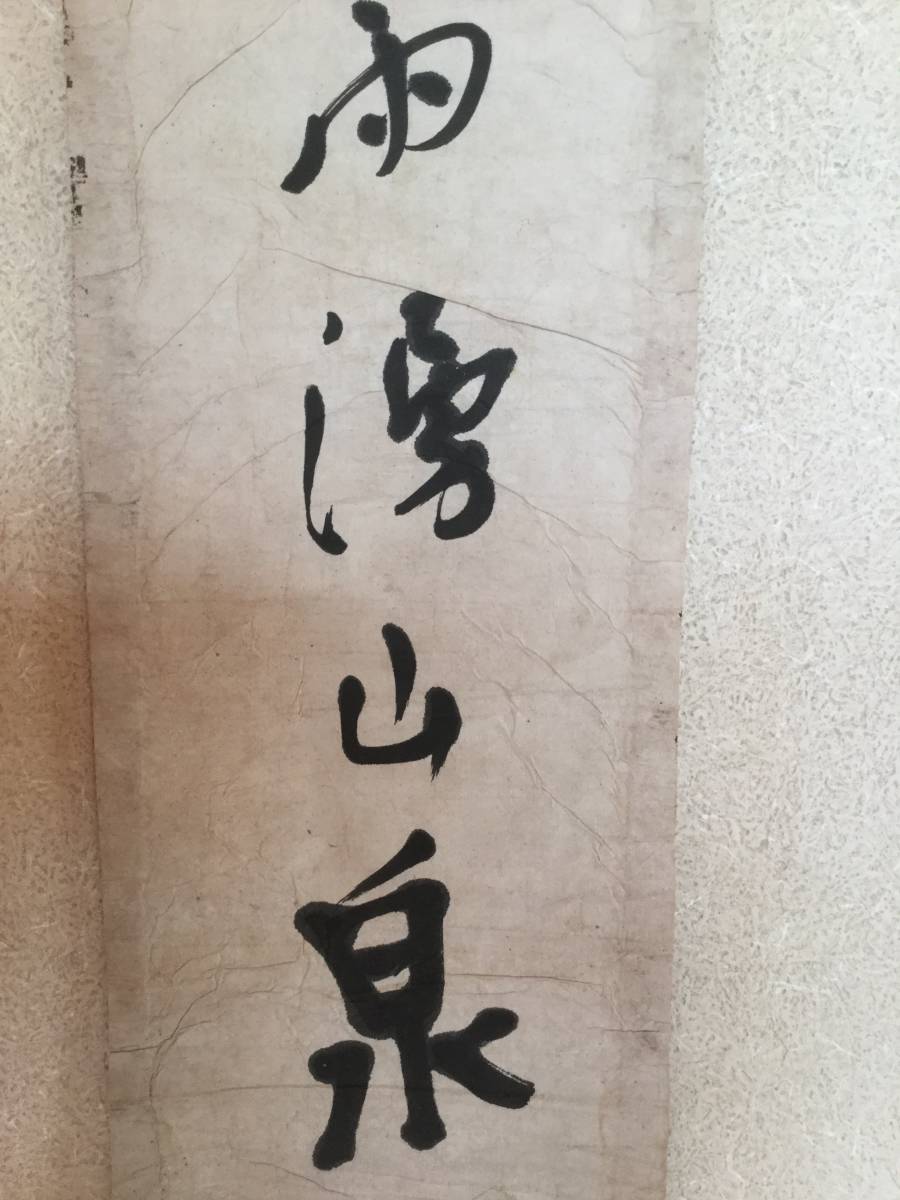 雨湧山泉